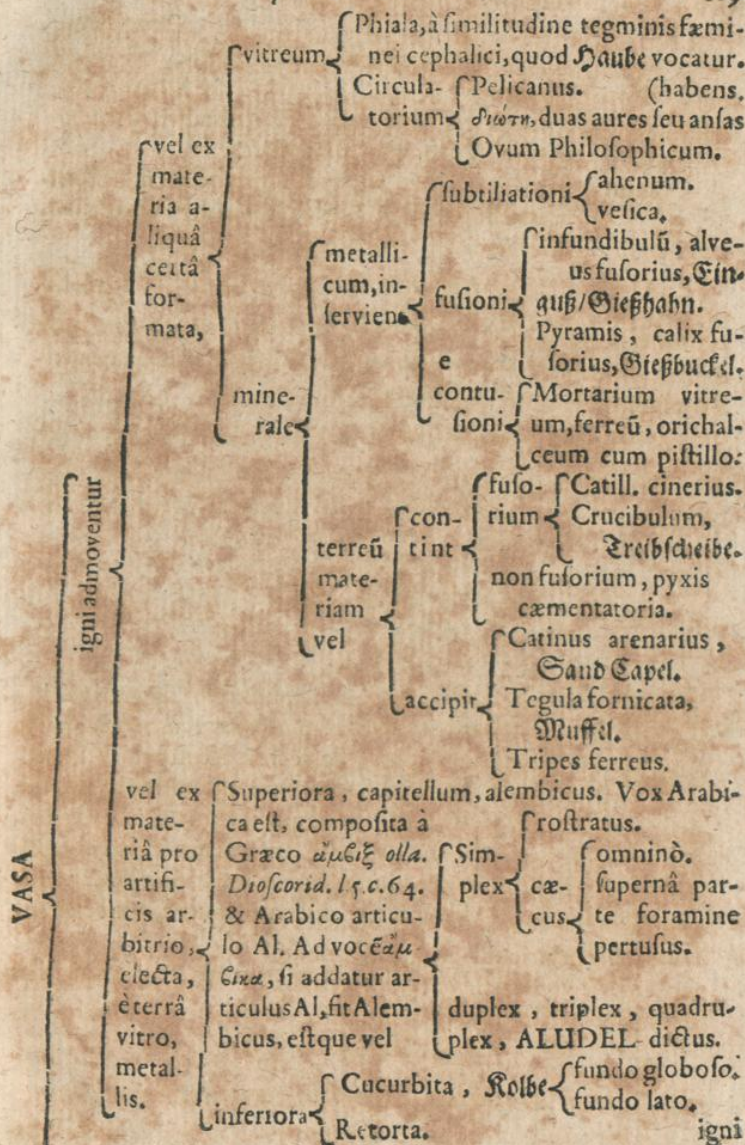 VASA
igni admoventur
vel ex
mate-
ria a-
liquâ
certâ
for-
mata,
vitreum
Phiala, à ſimilitudine tegminis fæmi-
nei cephalici, quod Haube vocatur.
Circula-
torium
Pelicanus. (habens.
διώτη, duas aures ſeu anſas
Ovum Philoſophicum.
mine-
rale
metalli-
cum, in-
ſerviens
ſubtiliationi
ahenum.
veſica.
fuſioni
infundibulũ, alve-
us fuſorius, Ein-
guß/Gießhahn.
Pyramis, calix fu-
ſorius, Gießbuckel.
e
contu-
ſioni
Mortarium vitre-
um, ferreũ, orichal-
ceum cum piſtillo:
terreũ
mate-
riam
vel
con-
tint
fuſo-
rium
Catill. cinerius.
Crucibulum,
Treibſcheibe.
non fuſorium, pyxis
cæmentatoria.
accipit
Catinus arenarius,
Sand Capel.
Tegula fornicata,
Muffel.
Tripes ferreus.
vel ex
mate-
riâ pro
artifi-
cis ar-
bitrio,
electa,
è terrâ
vitro,
metal-
lis.
Superiora, capitellum, alembicus. Vox Arabi-
ca eſt, compoſita à
Græco ἄμβιξ olla.
Dioſcorid. l 5. c. 64.
& Arabico articu-
lo Al. Ad vocẽ ἄμ-
βικα, ſi addatur ar-
ticulus Al, fit Alem-
bicus, eſtque vel
Sim-
plex
roſtratus.
cæ-
cus
omninò.
ſupernâ par-
te foramine
pertuſus.
duplex, triplex, quadru-
plex, ALUDEL dictus.
inferiora
Cucurbita, Kolbe
fundo globoſo.
fundo lato.
Retorta.
igni